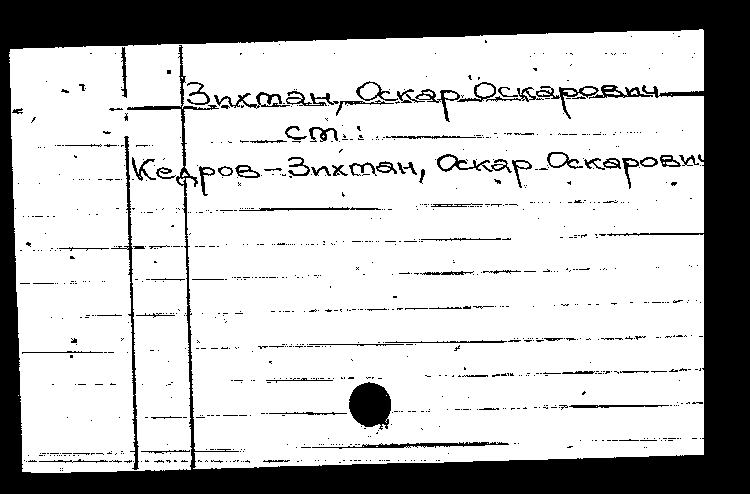 Зихман, Оскар Оскарович
ст.:
Кедров-Зихман, Оскар Оскарович